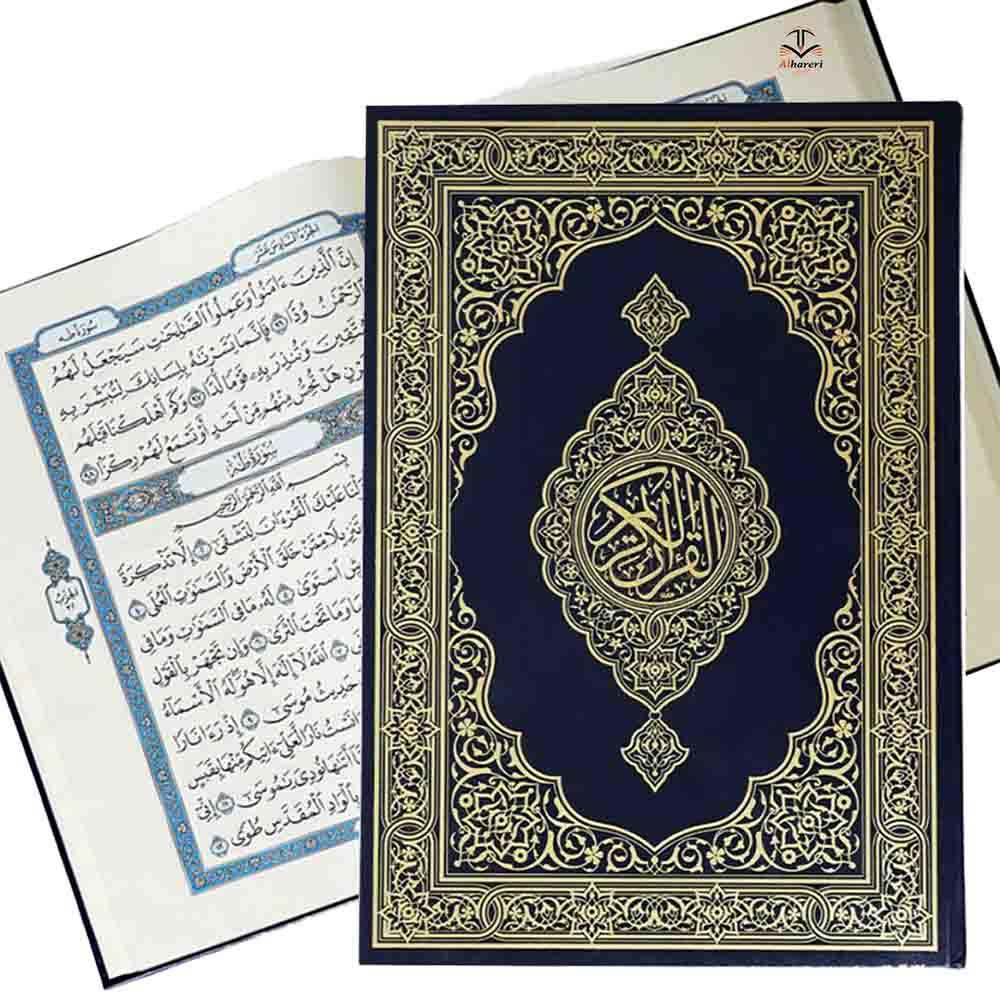 Alhareri
القرآن الكريم
الجزء السادس عشر
سورة طه
إِنَّ الَّذِينَ ءَامَنُوا وَعَمِلُوا الصَّٰلِحَٰتِ سَيَجْعَلُ لَهُمُ
الرَّحْمَٰنُ وُدًّا ٩٦ فَإِنَّمَا يَسَّرْنَٰهُ بِلِسَانِكَ لِتُبَشِّرَ بِهِ
الْمُتَّقِينَ وَتُنذِرَ بِهِ قَوْمًا لُّدًّا ٩٧ وَكَمْ أَهْلَكْنَا قَبْلَهُم
مِّن قَرْنٍ هَلْ تُحِسُّ مِنْهُم مِّنْ أَحَدٍ أَوْ تَسْمَعُ لَهُمْ رِكْزًا ٩٨
سورة طه
بِسْمِ اللَّهِ الرَّحْمَٰنِ الرَّحِيمِ
أَنزَلْنَا عَلَيْكَ الْقُرْءَانَ لِتَشْقَىٰ ٢ إِلَّا تَذْكِرَةً
تَنزِيلًا مِّمَّنْ خَلَقَ الْأَرْضَ وَالسَّمَٰوَٰتِ الْعُلَى ٤
الْعَرْشِ اسْتَوَىٰ ٥ لَهُ مَا فِي السَّمَٰوَٰتِ وَمَا فِي
وَمَا تَحْتَ الثَّرَىٰ ٦ وَإِن تَجْهَرْ بِالْقَوْلِ
اللَّهُ لَا إِلَٰهَ إِلَّا هُوَ لَهُ الْأَسْمَاءُ
حَدِيثُ مُوسَىٰ ٩ إِذْ رَءَا نَارًا
ءَانَسْتُ نَارًا لَّعَلِّي ءَاتِيكُم مِّنْهَا بِقَبَسٍ
أَتَىٰهَا نُودِيَ يَٰمُوسَىٰ ١١ إِنِّي
بِالْوَادِ الْمُقَدَّسِ طُوًى ١٢